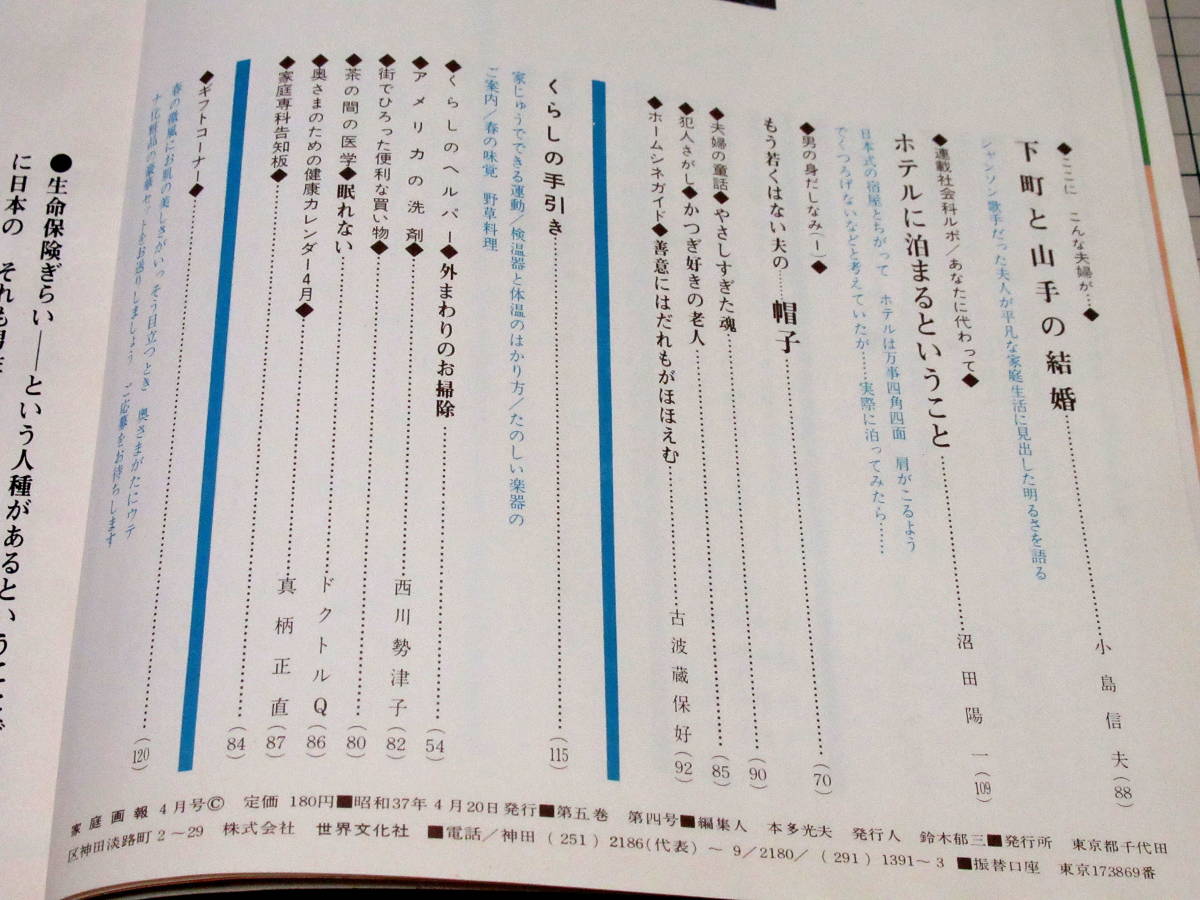 ◆ここに こんな夫婦が…◆
下町と山手の結婚……小島信夫(88)
シャンソン歌手だった夫人が平凡な家庭生活に見出した明るさを語る
◆連載社会科ルポ/あなたに代わって◆
ホテルに泊まるということ……沼田陽一(109)
日本式の宿屋とちがって ホテルは万事四角四面 肩がこるよう
でくつろげないなどと考えていたが……実際に泊ってみたら……
◆男の身だしなみ(一)◆
もう若くはない夫の……帽子……(70)
◆夫婦の童話◆やさしすぎた魂……(90)
◆犯人さがし◆かつぎ好きの老人……(85)
◆ホームシネガイド◆善意にはだれもがほほえむ……古波蔵保好(92)
くらしの手引き……(115)
家じゅうでできる運動/検温器と体温のはかり方/たのしい楽器の
ご案内/春の味覚 野草料理
◆くらしのヘルパー◆外まわりのお掃除……(54)
◆アメリカの洗剤◆……西川勢津子(82)
◆街でひろった便利な買い物◆……(80)
◆茶の間の医学◆眠れない……ドクトルQ(86)
◆奥さまのための健康カレンダー4月◆……真柄正直(87)
◆家庭専科告知板◆……(84)
◆ギフトコーナー◆……(120)
春の微風にお肌の美しさがいっそう目立つとき 奥さまがたにウテ
ナ化粧品の豪華セットをお送りしましょう ご応募をお待ちします
家庭画報 4月号Ⓒ 定価 180円■昭和37年4月20日発行■第五巻 第四号■編集人 本多光夫 発行人 鈴木郁三■発行所 東京都千代田
区神田淡路町2〜29 株式会社 世界文化社 ■電話/神田(251)2186(代表)〜9/2180/(291)1391〜3 ■振替口座 東京173869番
●生命保険ぎらい——という人種があるということで
に日本の それも